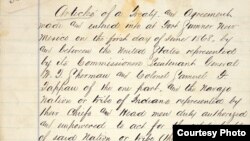 Articles of a Treaty and Agreement
made and entered into at Fort Sumner New
Mexico on the first day of June 1868 by
and between the United States represented
by its Commissioners Lieutenant General
W. T. Sherman and Colonel Samuel F.
Tappan of the one part, and the Navajo
Nation or tribe of Indians represented by
their Chiefs and Head men duly authorized
and empowered to act for the
of said Nation or tribe
Courtesy Photo